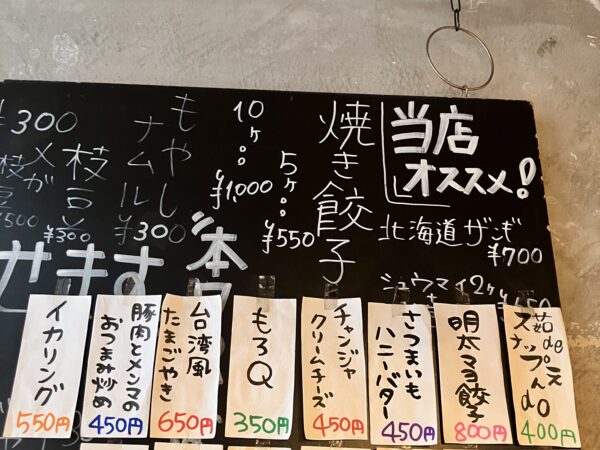 当店
オススメ!
焼き餃子
5ヶ
¥550
10ヶ
¥1,000
北海道ザンギ
¥700
シュウマイ2ヶ
もやし
ナムル
¥300
枝豆
¥300
¥300
¥500
本日
せます
茹de
スナップえんdo
400円
明太マヨ餃子
800円
さつまいも
ハニーバター
450円
チャンジャ
クリームチーズ
450円
もろQ
350円
台湾風
たまごやき
650円
豚肉とメンマの
おつまみ炒め
450円
イカリング
550円